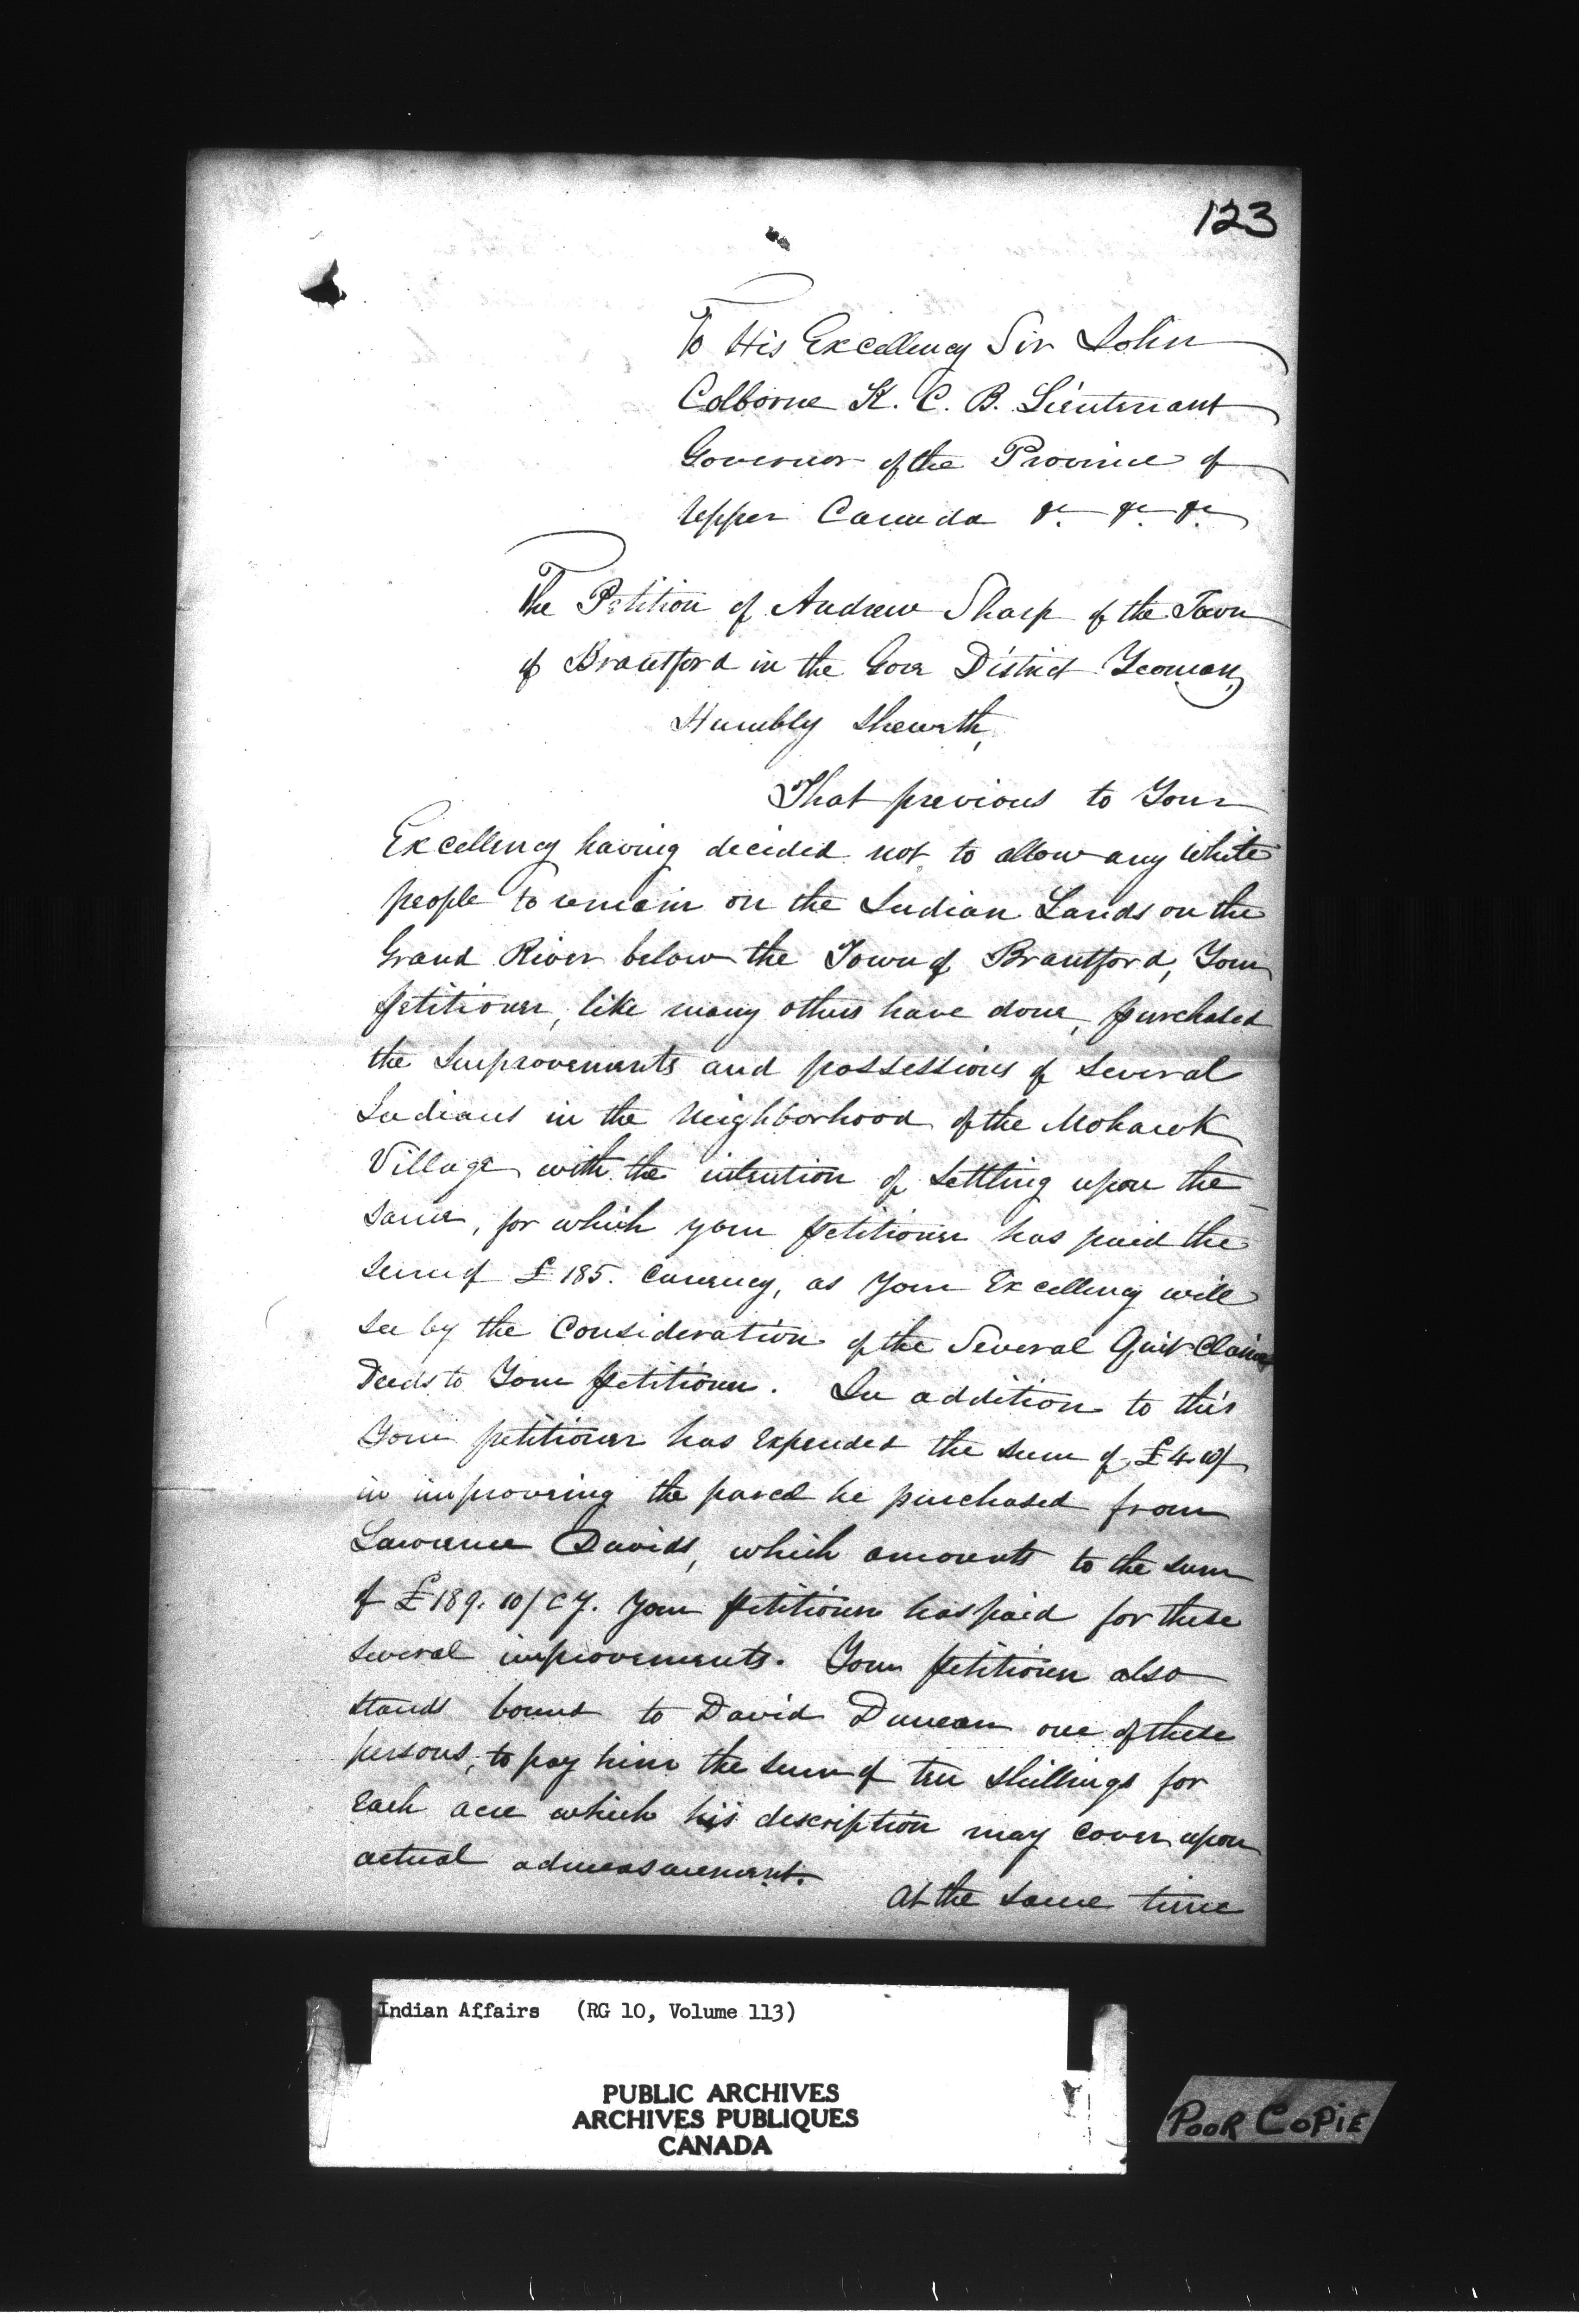 123
To His Excellency Sir John
Colborne K. C. B. Lieutenant
Governor of the Province of
Upper Canada &c. &c. &c.
The Petition of Andrew Sharp of the Town
of Brantford in the Gore District Yeoman,
Humbly Sheweth,
That previous to Your
Excellency having decided not to allow any White
people to remain on the Indian Lands on the
Grand River below the Town of Brantford, Your
petitioner, like many others have done, purchased
the Improvements and possessions of several
Indians in the Neighborhood of the Mohawk
Village with the intention of settling upon the
same, for which your petitioner has paid the
sum of £185. Currency, as Your Excellency will
see by the Consideration of the Several Quit Claim
Deeds to Your petitioner. In addition to this
Your petitioner has Expended the sum of £4. 10/
in improving the parcel he purchased from
Lawrence Davids, which amounts to the sum
of £189. 10/ Cy. Your petitioner has paid for these
several improvements. Your petitioner also
stands bound to David Duncan one of these
persons, to pay him the sum of ten shillings for
Each acre which his description may cover upon
actual admeasurement.
At the same time
Indian Affairs (RG 10, Volume 113)
PUBLIC ARCHIVES
ARCHIVES PUBLIQUES
CANADA
POOR COPIE